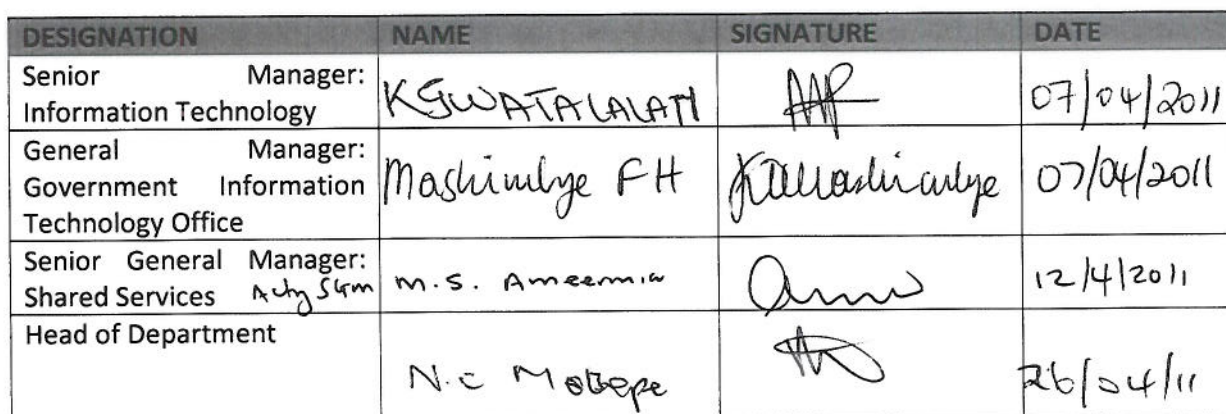 DESIGNATION NAME SIGNATURE DATE
Senior Manager:
Information Technology
07/04/2011
General Manager:
Government Information
Technology Office
Mashimbye FH
07/04/2011
Senior General Manager:
Shared Services
M.S. Ameermia
12/4/2011
Head of Department
N.C
26/04/11